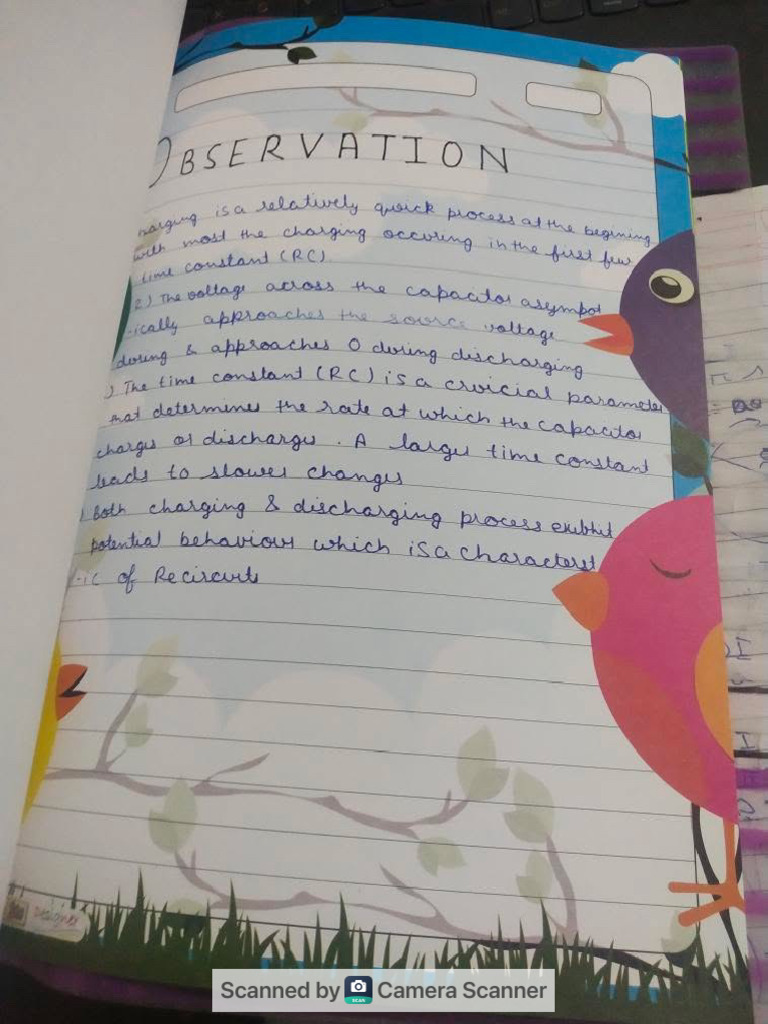 OBSERVATION
harging is a relatively quick process at the begining
with most the charging occuring in the first few
time constant (RC)
2) The voltage across the capacitor asympot
-ically approaches the source voltage
during & approaches 0 during discharging
) The time constant (RC) is a crucial parameter
that determines the rate at which the capacitor
charges or discharges. A larger time constant
leads to slower changes
) Both charging & discharging process exibhit
potential behaviour which is a characterst
-ic of Recircuits
Designer
Scanned by Camera Scanner